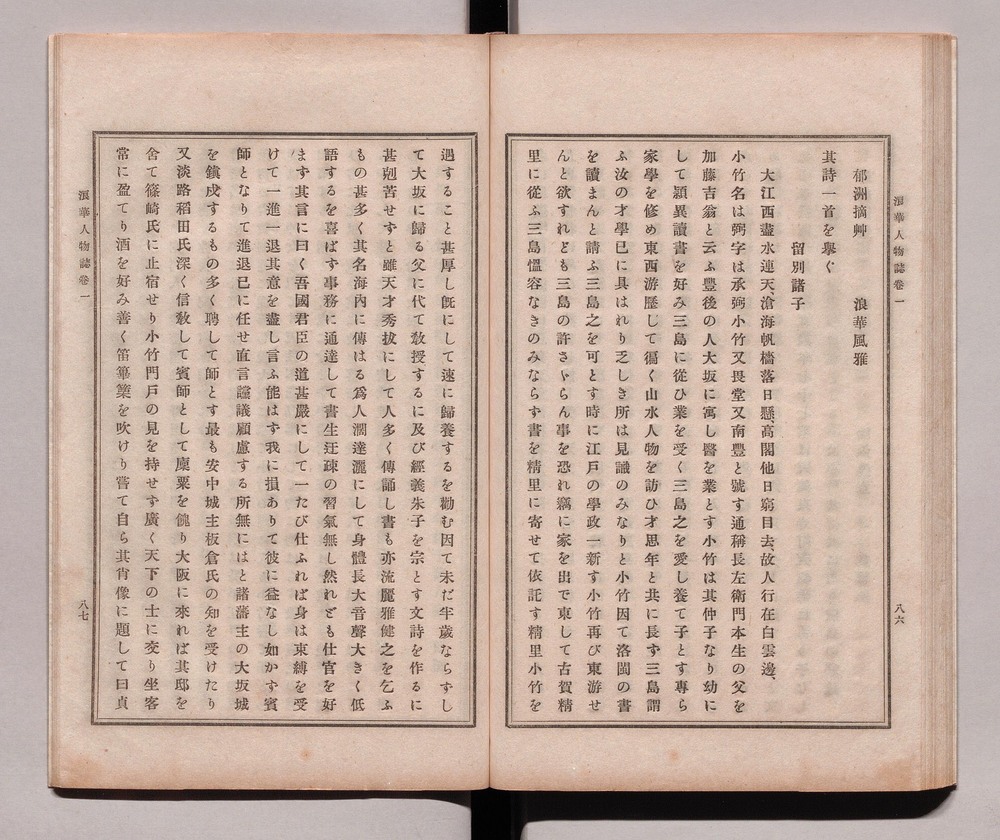 浪華人物誌卷一
八六
郁洲摘艸 浪華風雅
其詩一首を擧ぐ
留別諸子
大江西盡水連天、滄海帆檣落日懸、高閣他日窮目去、故人行在白雲邊、
小竹名は弼字は承弼小竹又畏堂又南豐と號す通稱長左衛門本生の父を
加藤吉翁と云ふ豐後の人大坂に寓し醫を業とす小竹は其仲子なり幼に
して穎異讀書を好み三島に從ひ業を受く三島之を愛し養て子とす專ら
家學を修め東西游歷して徧く山水人物を訪ひ才思年と共に長ず三島謂
ふ汝の才學已に具はれり乏しき所は見識のみなりと小竹因て洛閩の書
を讀まんと請ふ三島之を可とす時に江戸の學政一新す小竹再び東游せ
んと欲すれども三島の許さゞらん事を恐れ竊に家を出で東して古賀精
里に從ふ三島慍容なきのみならず書を精里に寄せて依託す精里小竹を
遇すること甚厚し旣にして速に歸養するを勸む因て未だ半歲ならずし
て大坂に歸る父に代て敎授するに及び經義朱子を宗とす文詩を作るに
甚剋苦せずと雖天才秀拔にして人多く傳誦し書も亦流麗雅健之を乞ふ
もの甚多く其名海內に傳はる爲人濶達灑にして身體長大音聲大きく低
語するを喜ばず事務に通達して書生迂疎の習氣無し然れども仕官を好
まず其言に曰く吾國君臣の道甚嚴にして一たび仕ふれば身は束縛を受
けて一進一退其意を盡し言ふ能はず我に損ありて彼に益なし如かず賓
師となりて進退已に任せ直言讜議顧慮する所無にはと諸藩主の大坂城
を鎭戍するもの多く聘して師とす最も安中城主板倉氏の知を受けたり
又淡路稻田氏深く信敎して賓師として廩粟を餽り大阪に來れば其邸を
舍て篠崎氏に止宿せり小竹門戸の見を持せず廣く天下の士に交り坐客
常に盈てり酒を好み善く笛篳篥を吹けり嘗て自ら其肖像に題して曰貞
浪華人物誌卷一
八七